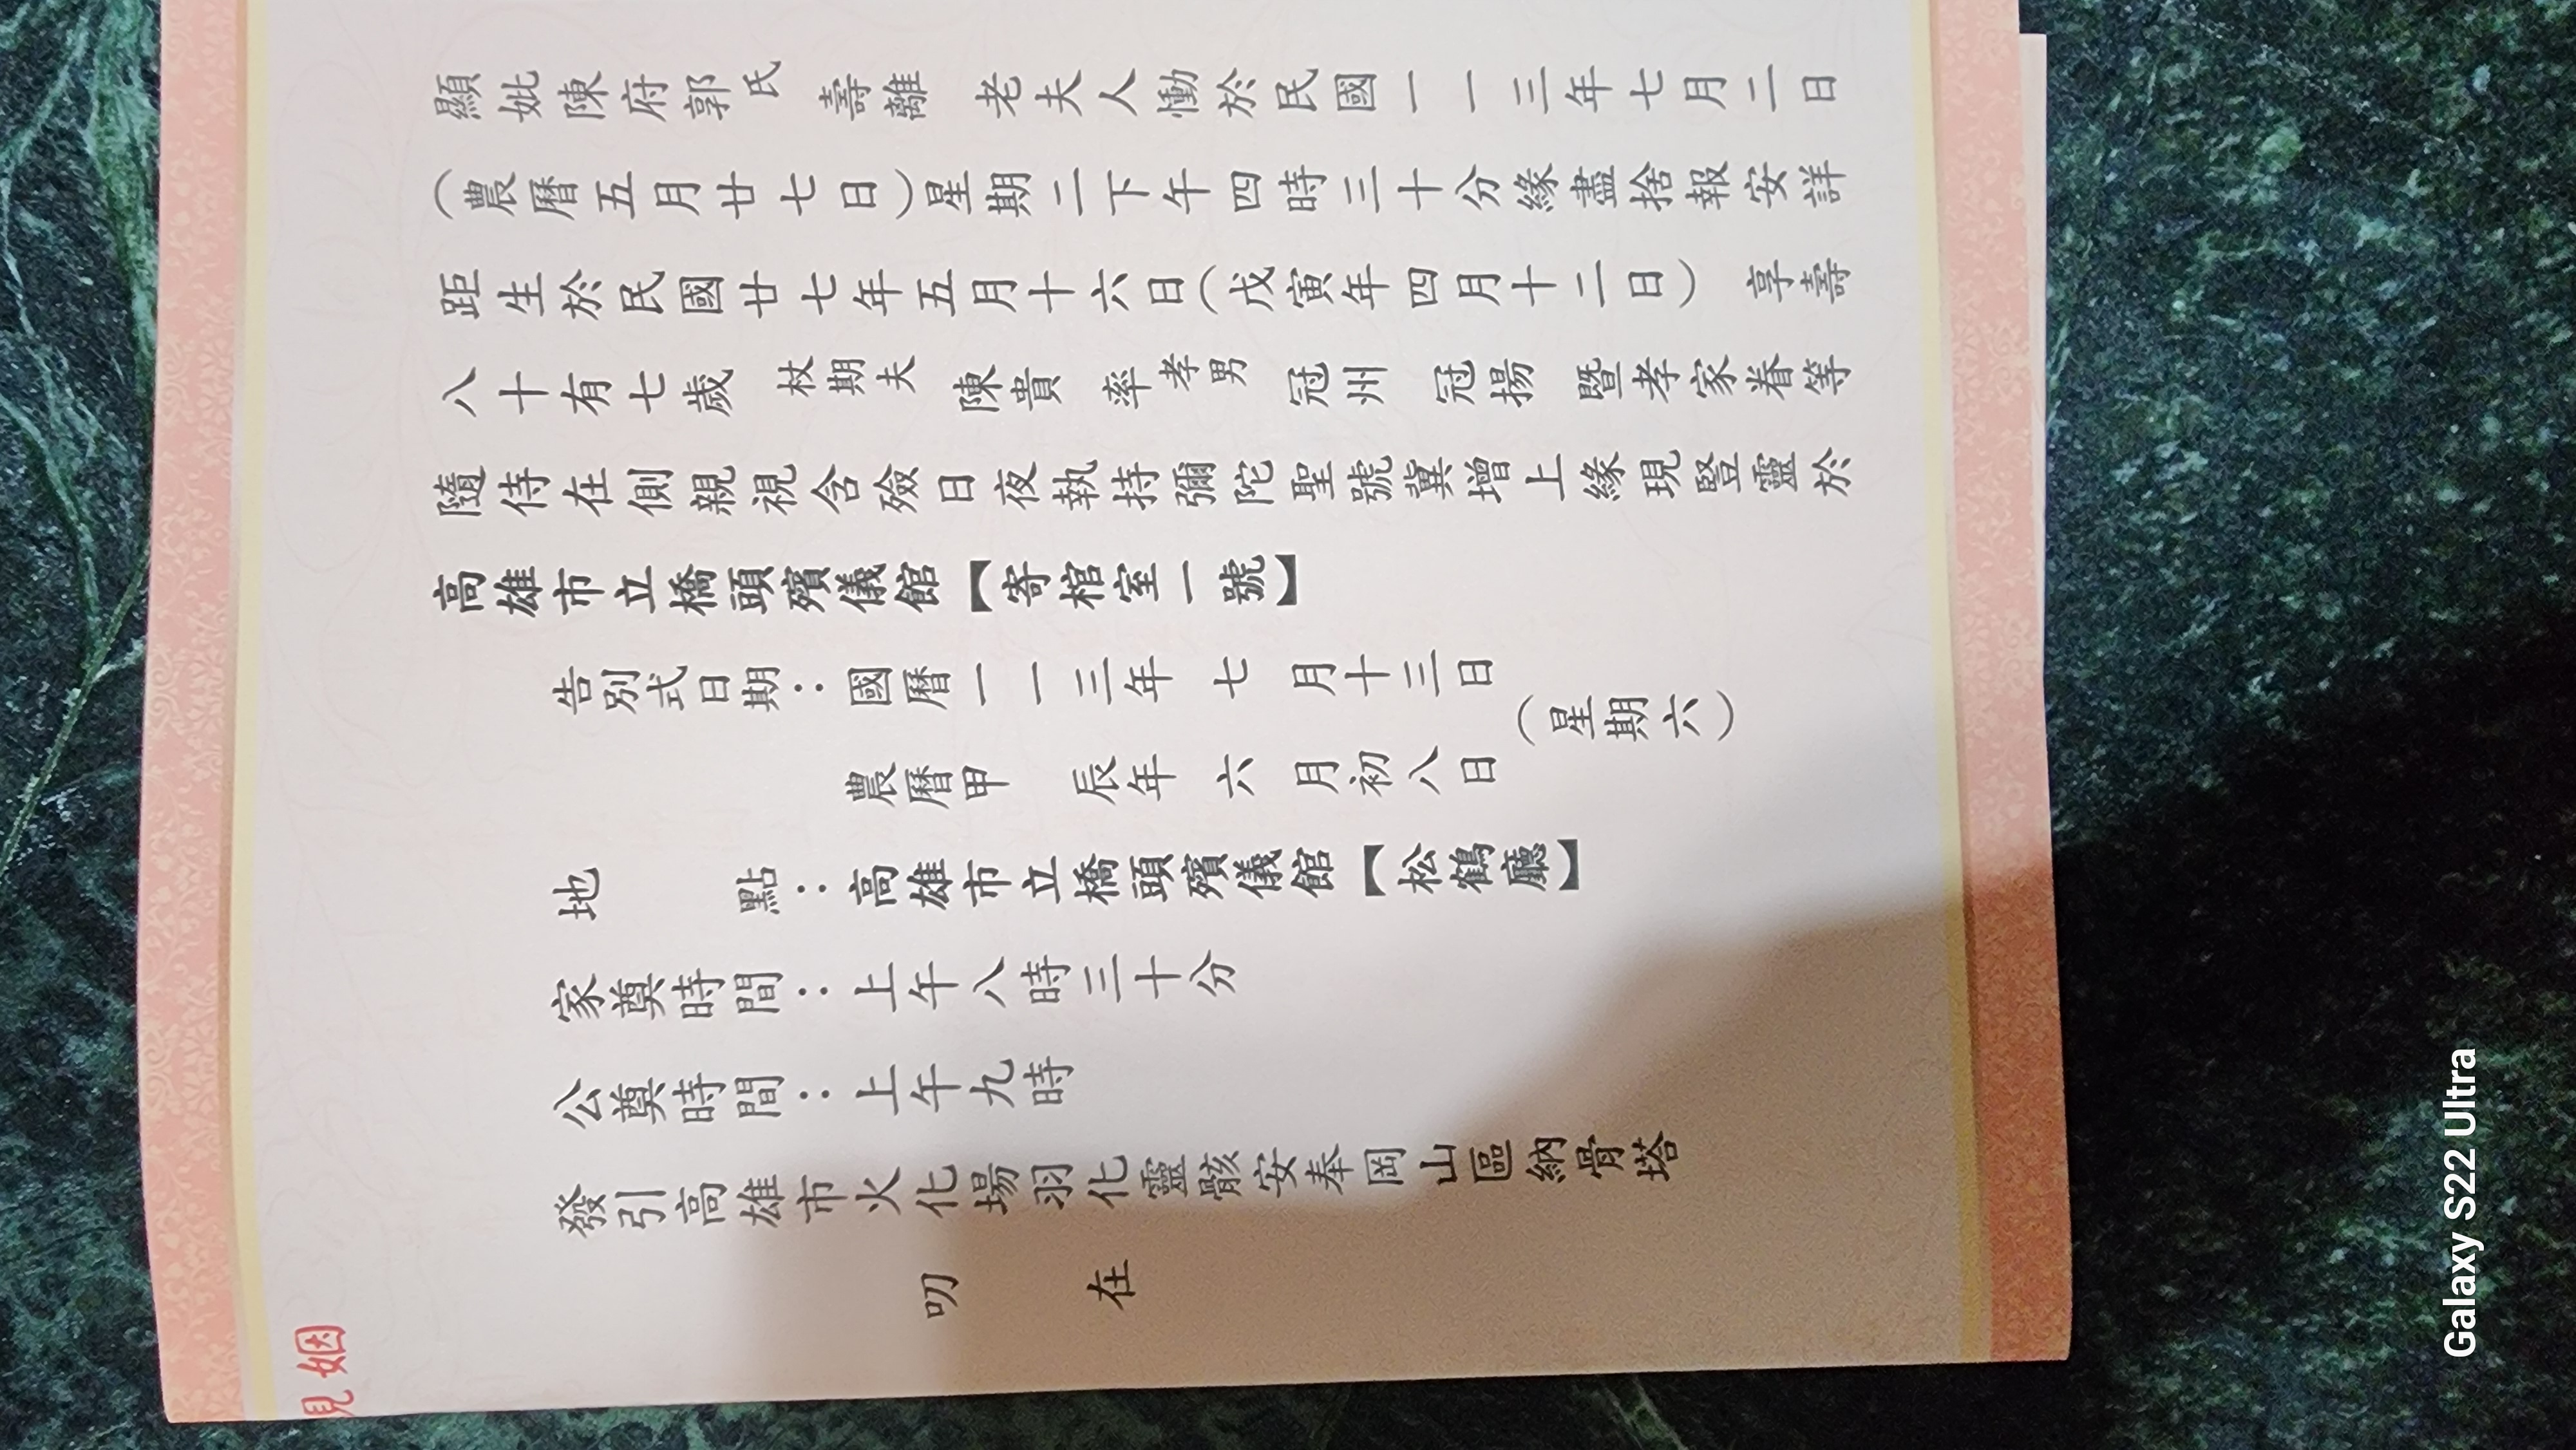 顯妣陳府郭氏 壽離 老夫人慟於民國一一三年七月二日
（農曆五月廿七日）星期二下午四時三十分緣盡捨報安詳
距生於民國廿七年五月十六日（戊寅年四月十二日） 享壽
八十有七歲 杖期夫 陳貴 率孝男 冠州 冠揚 暨孝家眷等
隨侍在側親視含殮日夜執持彌陀聖號冀增上緣現豎靈於
高雄市立橋頭殯儀館【寄棺室一號】
告別式日期：國曆一一三年七月十三日
（星期六）
農曆甲辰年六月初八日
地點：高雄市立橋頭殯儀館【松鶴廳】
家奠時間：上午八時三十分
公奠時間：上午九時
發引高雄市火化場羽化靈骸安奉岡山區納骨塔
叨 在
姻
Galaxy S22 Ultra